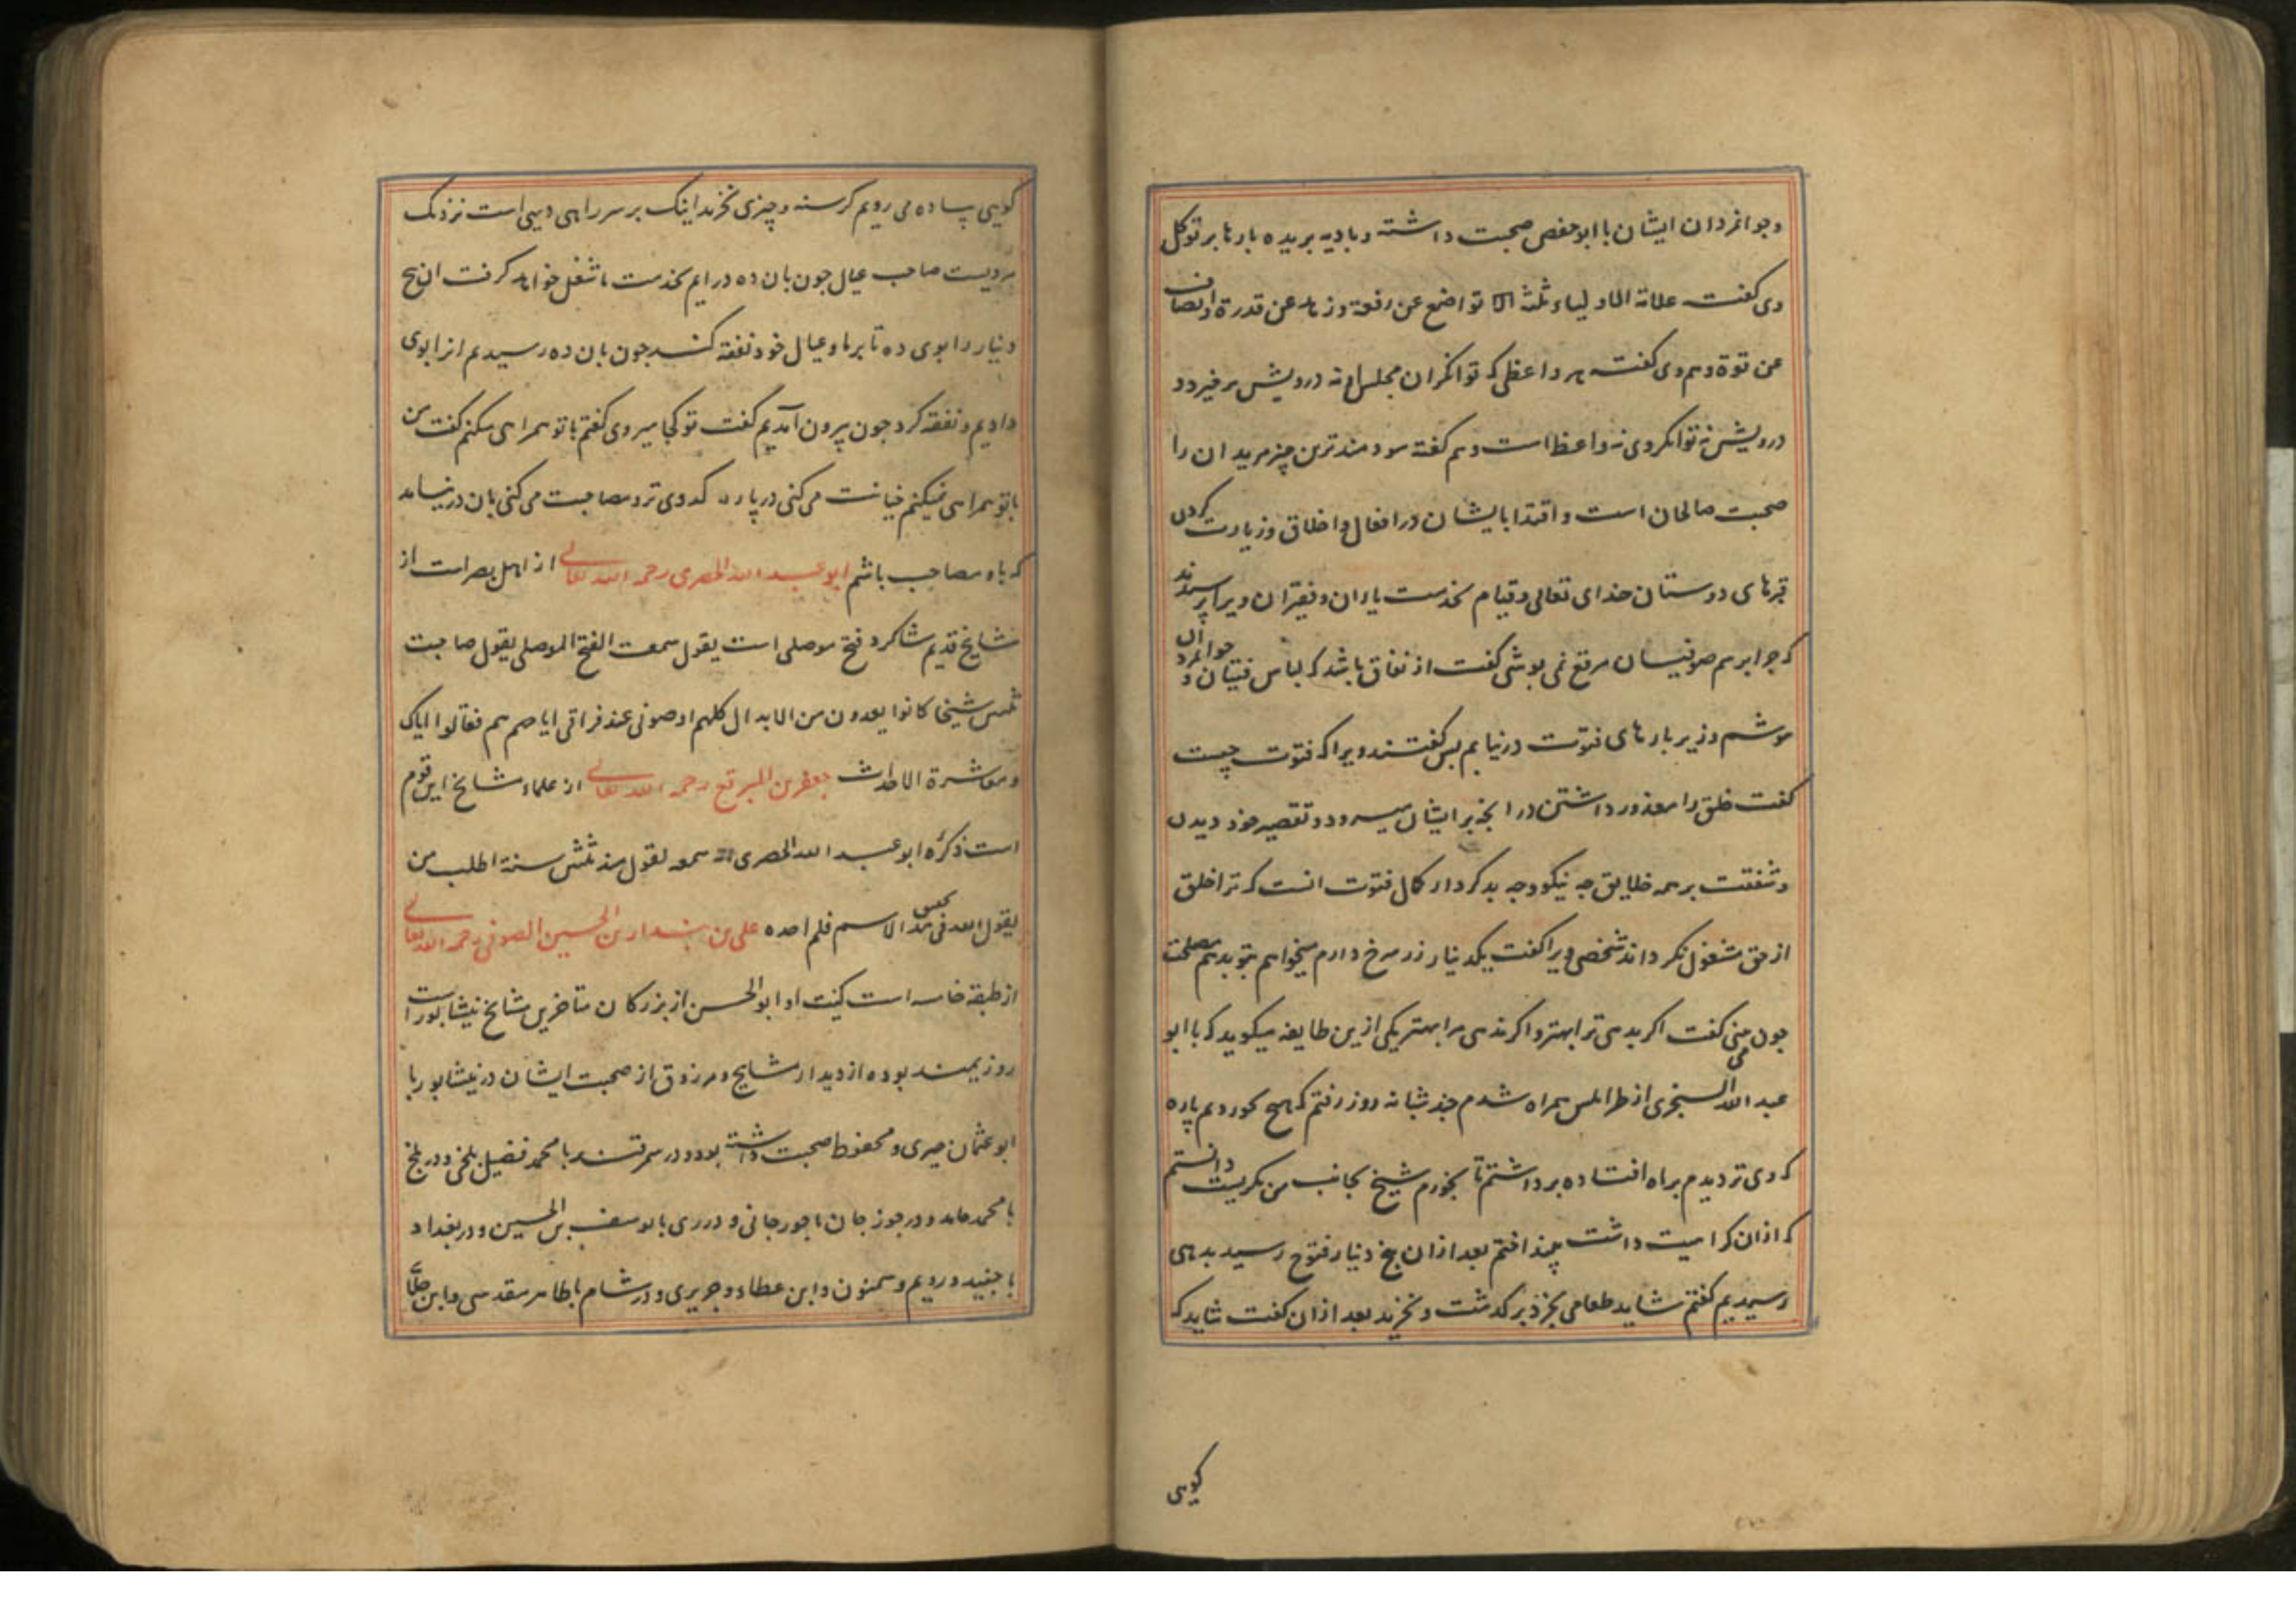 وجوانمردان ایشان با ابوحفص صحبت داشته و بادیه بریده بارها بر توکل
وی کفت علامة الاولیاء ثلثة تواضع عن رفعة وزهد عن قدرة وانصاف
عن قوة وهم وی کفت هر واعظی که توانکران مجلس او نه درویش برخیزد و
درویش نه توانکر وی نه واعظ است وهم کفته سودمندترین چیز مریدان را
صحبت صالحان است و اقتدا بایشان در افعال و اخلاق وزیارت کردن
قبرهای دوستان خدای تعالی و قیام بخدمت یاران و فقیران ویرا پرسیدند
که چرا برسم صوفیان مرقع نمی پوشی کفت از نفاق باشد که لباس فتیان و جوانمردان
پوشم وزیر بارهای فتوت درنیایم پس کفتند ویرا که فتوت چیست
کفت خلق را معذور داشتن در انچه بر ایشان میرود و تقصیر خود دیدن
وشفقت بر همه خلایق چه نیکو وچه بد کردار کمال فتوت انست که ترا خلق
از حق مشغول نکرداند شخصی ویرا کفت یکدینار زر سرخ دارم میخواهم بتو بدهم مصلحت
چون می بینی کفت اکر بدهی ترا بهتر واکر ندهی مرا بهتر یکی ازین طایفه میکوید که با ابو
عبد الله السنجری از طرابلس همراه شدم چند شبانه روز رفتم که هیچ نخوردیم پاره
کدوی تر دیدم براه افتاده برداشتم تا بخورم شیخ بجانب من نکریست دانستم
که ازان کراهیت داشت بینداختم بعد ازان پنج دینار فتوح رسید بدهی
رسیدیم کفتم شاید طعامی بخرد برکذشت و نخرید بعد ازان کفت شاید که
کویی
کویی پیاده می رویم کرسنه و چیزی نخرید اینک بر سر راهی دیهی است نزدیک
مردیست صاحب عیال چون بان ده درایم بخدمت ما شغل خواهد کرفت ان پنج
دینار را بوی ده تا بر ما و عیال خود نفقه کند چون بان ده رسیدیم انرا بوی
دادیم و نفقه کرد چون بیرون آمدیم کفت تو کجا میروی کفتم با تو همراهی میکنم کفت من
با تو همراهی نمیکنم خیانت می کنی در پاره کدوی تر و مصاحبت می کنی بان در نیاید
که با تو مصاحب باشم ابو عبد الله الحصری رحمه الله تعالی از اهل بصره است از
مشایخ قدیم شاکرد فتح موصلی است یقول سمعت الفتح الموصلی یقول صاحبت
ثلثین شیخا کانوا یعدون من الابدال کلهم اوصونی عند فراقی ایاهم فقالوا ایاک
ومعاشرة الاحداث جعفر بن المبرقع رحمه الله تعالی از علماء مشایخ این قوم
است ذکره ابو عبد الله الحصری انه سمعه یقول منذ ثلثین سنة اطلب من
یقول الله فی تحقیق هذا الاسم فلم اجده علی بن بندار بن الحسین الصوفی رحمه الله تعالی
از طبقه خامسه است کنیت او ابو الحسن از بزرکان متاخرین مشایخ نیشابور است
روزیمند بوده از دیدار مشایخ و مرزوق از صحبت ایشان در نیشابور با
ابو عثمان حیری و محفوظ صحبت داشته بود و در سمرقند با محمد فضیل بلخی و در بلخ
با محمد حامد و در جوزجان با جورجانی و در ری با یوسف بن الحسین و در بغداد
با جنید و رویم و سمنون و ابن عطاء و جریری و در شام با طاهر مقدسی و ابن جلا